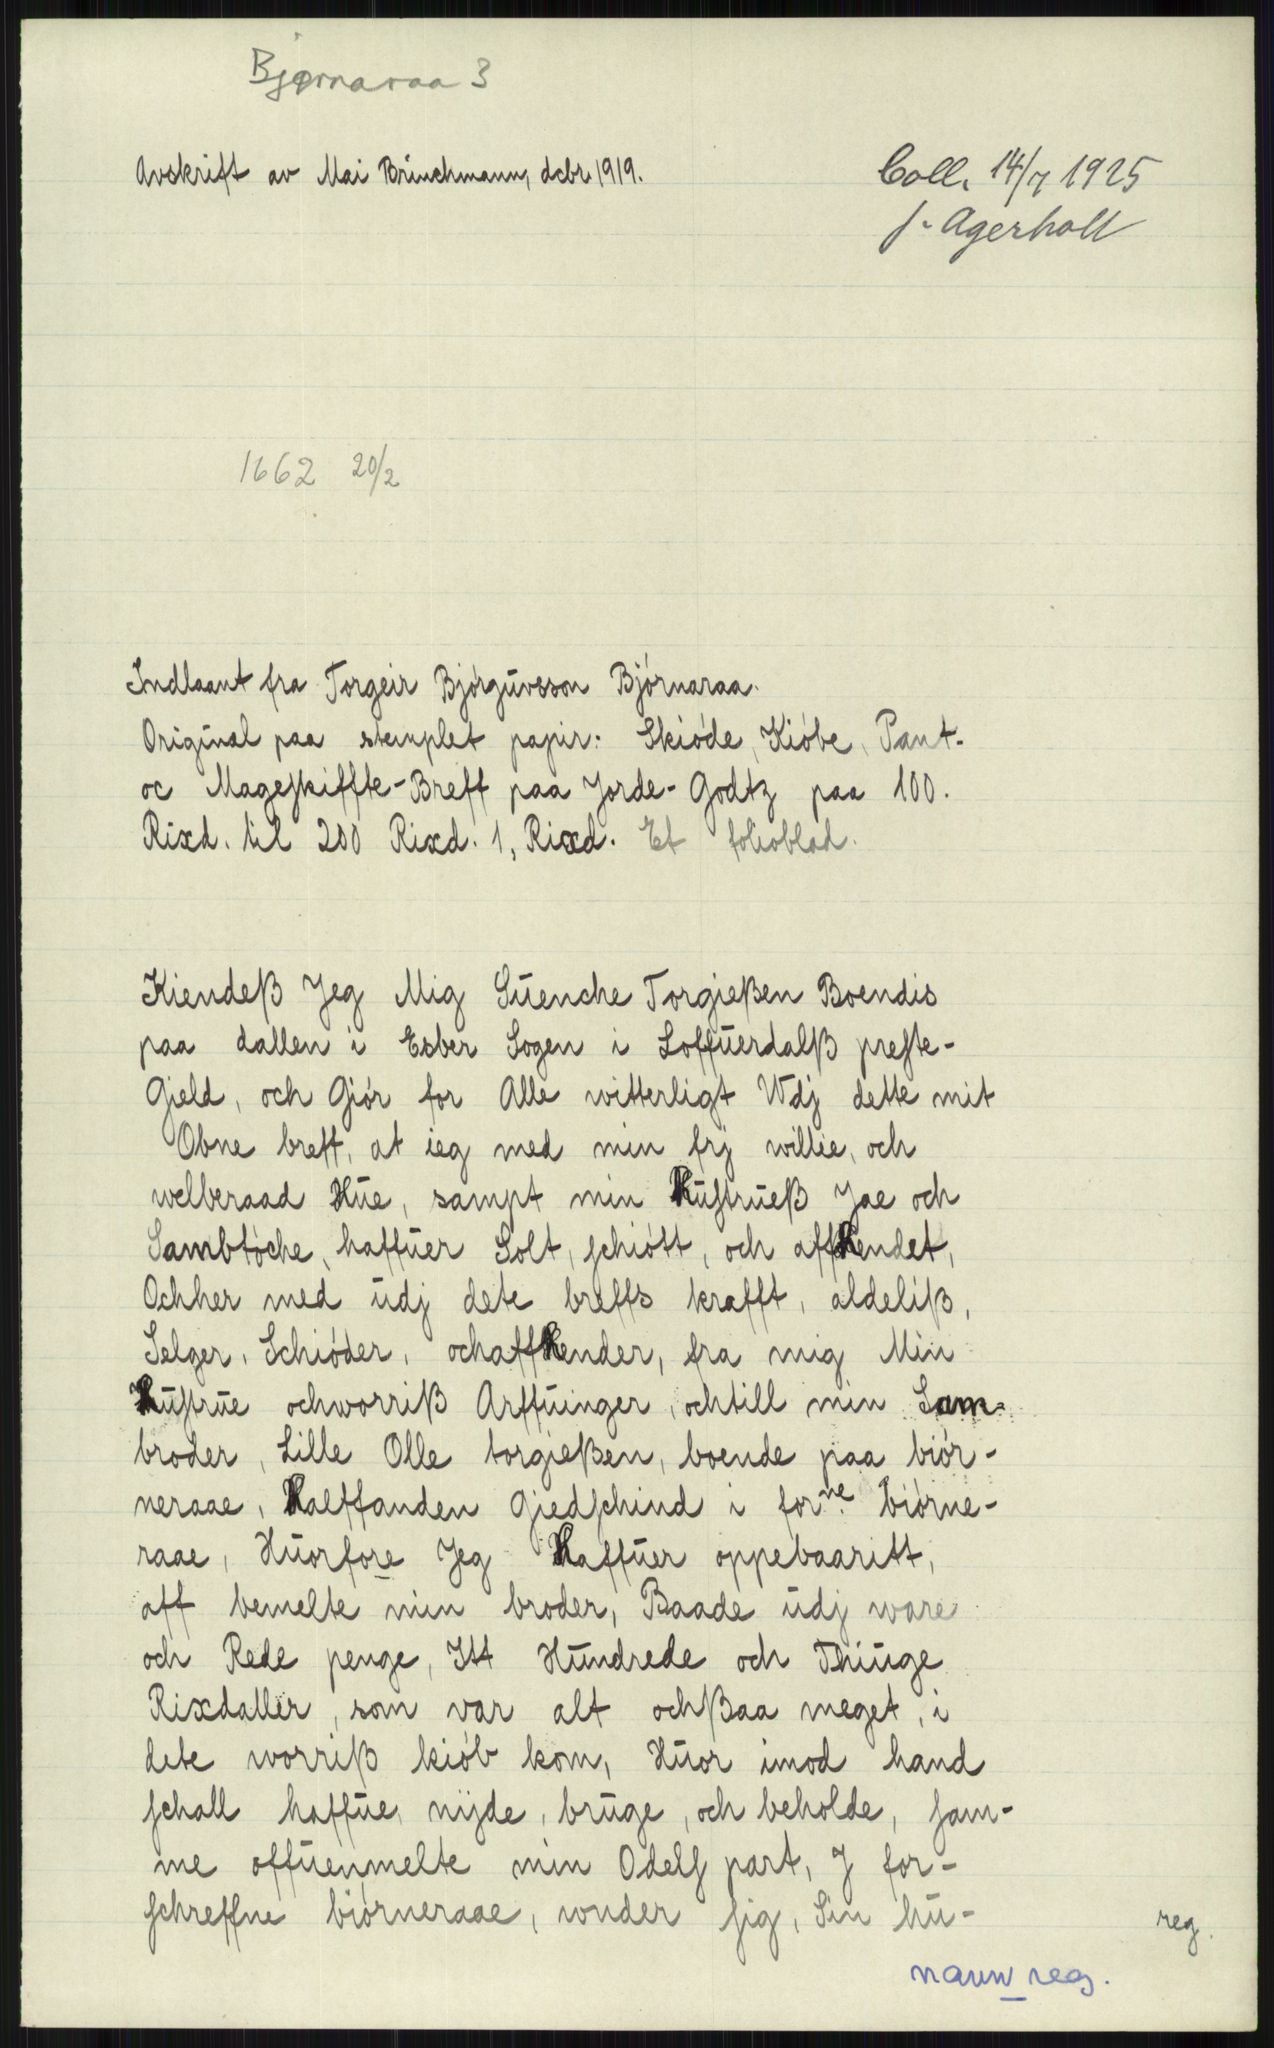 Bjørnaraa 3
Avskrift av Mai Brinchmann, dcbr. 1919.
Coll. 14/7 1925
J. Agerholt
1662 20/2
Indlaant fra Torgeir Bjórgúvsson Bjórnaraa.
Original paa stemplet papir: Skióde, Kióbe, Pant-
oc Mageskiffte-Breff paa Jorde-Godtz paa 100.
Rixd. til 200 Rixd. 1, Rixd. Et folioblad.
Kiendeß Jeg Mig Súenche Torgießen Boendis
paa dallen i Esber Sogen i Loffúerdalß preste-
Gield, och Giór for Alle witterligt Vdj dette mit
Obne breff, at ieg med min frj willie, och
welberaad Húe, sampt min Hústrúeß Jae och
Sambtóche, haffúer Solt, schiótt, och affhendet,
Ochher med údj dete breffs krafft, aldeliß,
Selger, Schióder, ochaffhender, fra mig Min
Hústrúe ochworriß Arffúinger, ochtill min Sam-
broder, Lille Olle torgießen, boende paa biór-
neraae, Halffanden Giedschind i forne. biórne-
raae, Húorfore Jeg Haffúer oppebaaritt,
aff bemelte min broder, Baade údj ware
och Rede penge, Itt Húndrede och Thiúge
Rixdaller, som var alt ochßaa meget, i
dete worriß kiób kom, Húor imod hand
schall haffúe, nÿde, brúge, och beholde, sam-
me offúenmelte min Odels part, J for-
schreffne biórneraae, wnder sig, Sin hú-
reg.
navn reg.